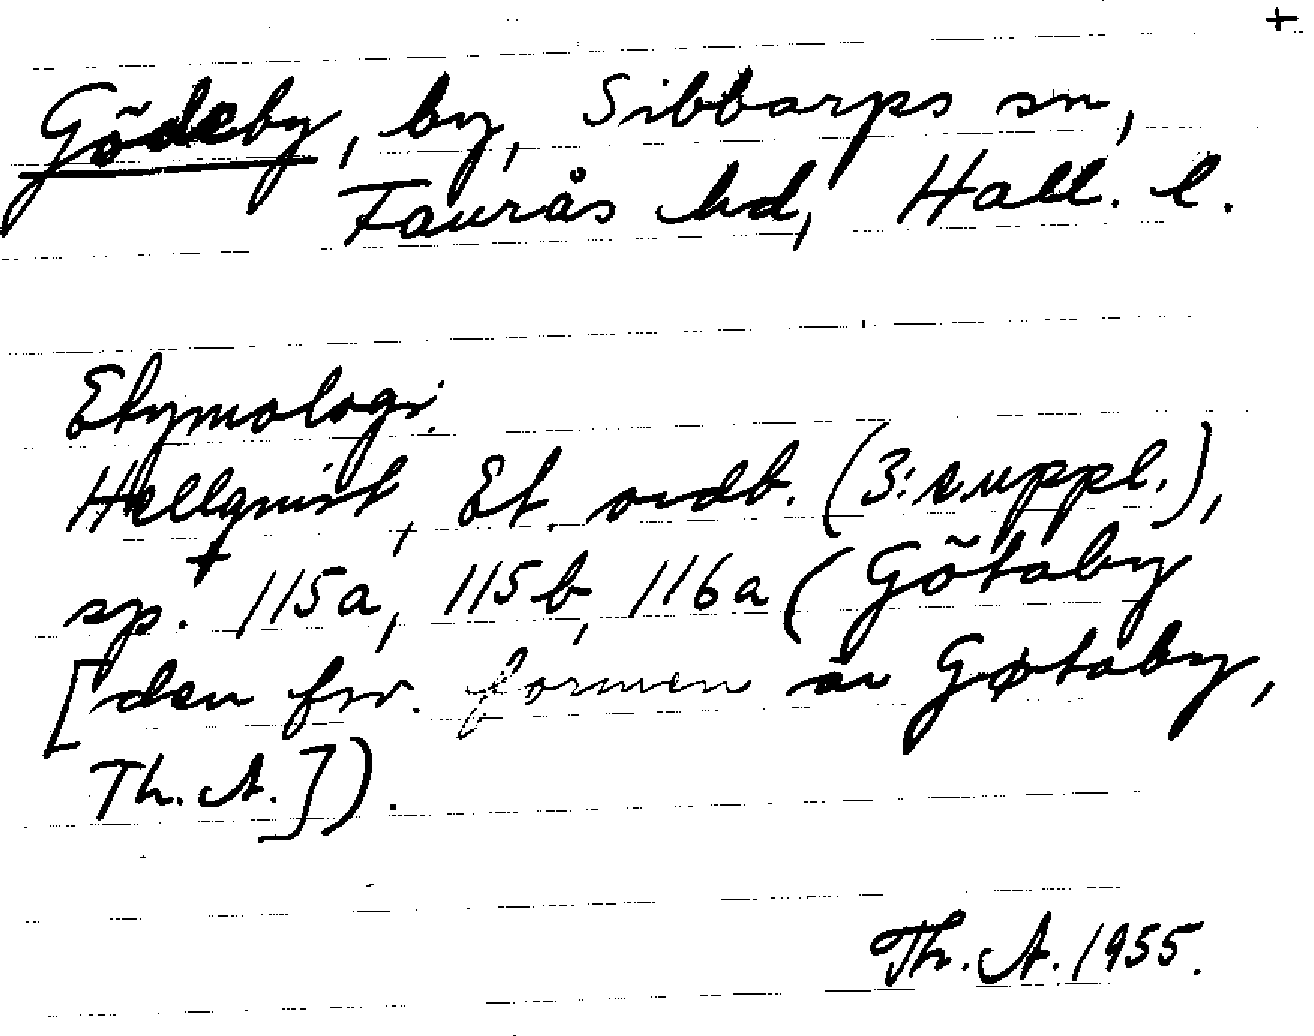 +
Gödeby, by, Sibbarps sn,
Faurås hd, Hall. l.
Etymologi.
Hellquist, Et. ordb. (3: suppl.),
sp. 115a, 115b, 116a (Götaby
[den frv. formen är Gøtaby,
Th. A.]).
Th. A. 1955.